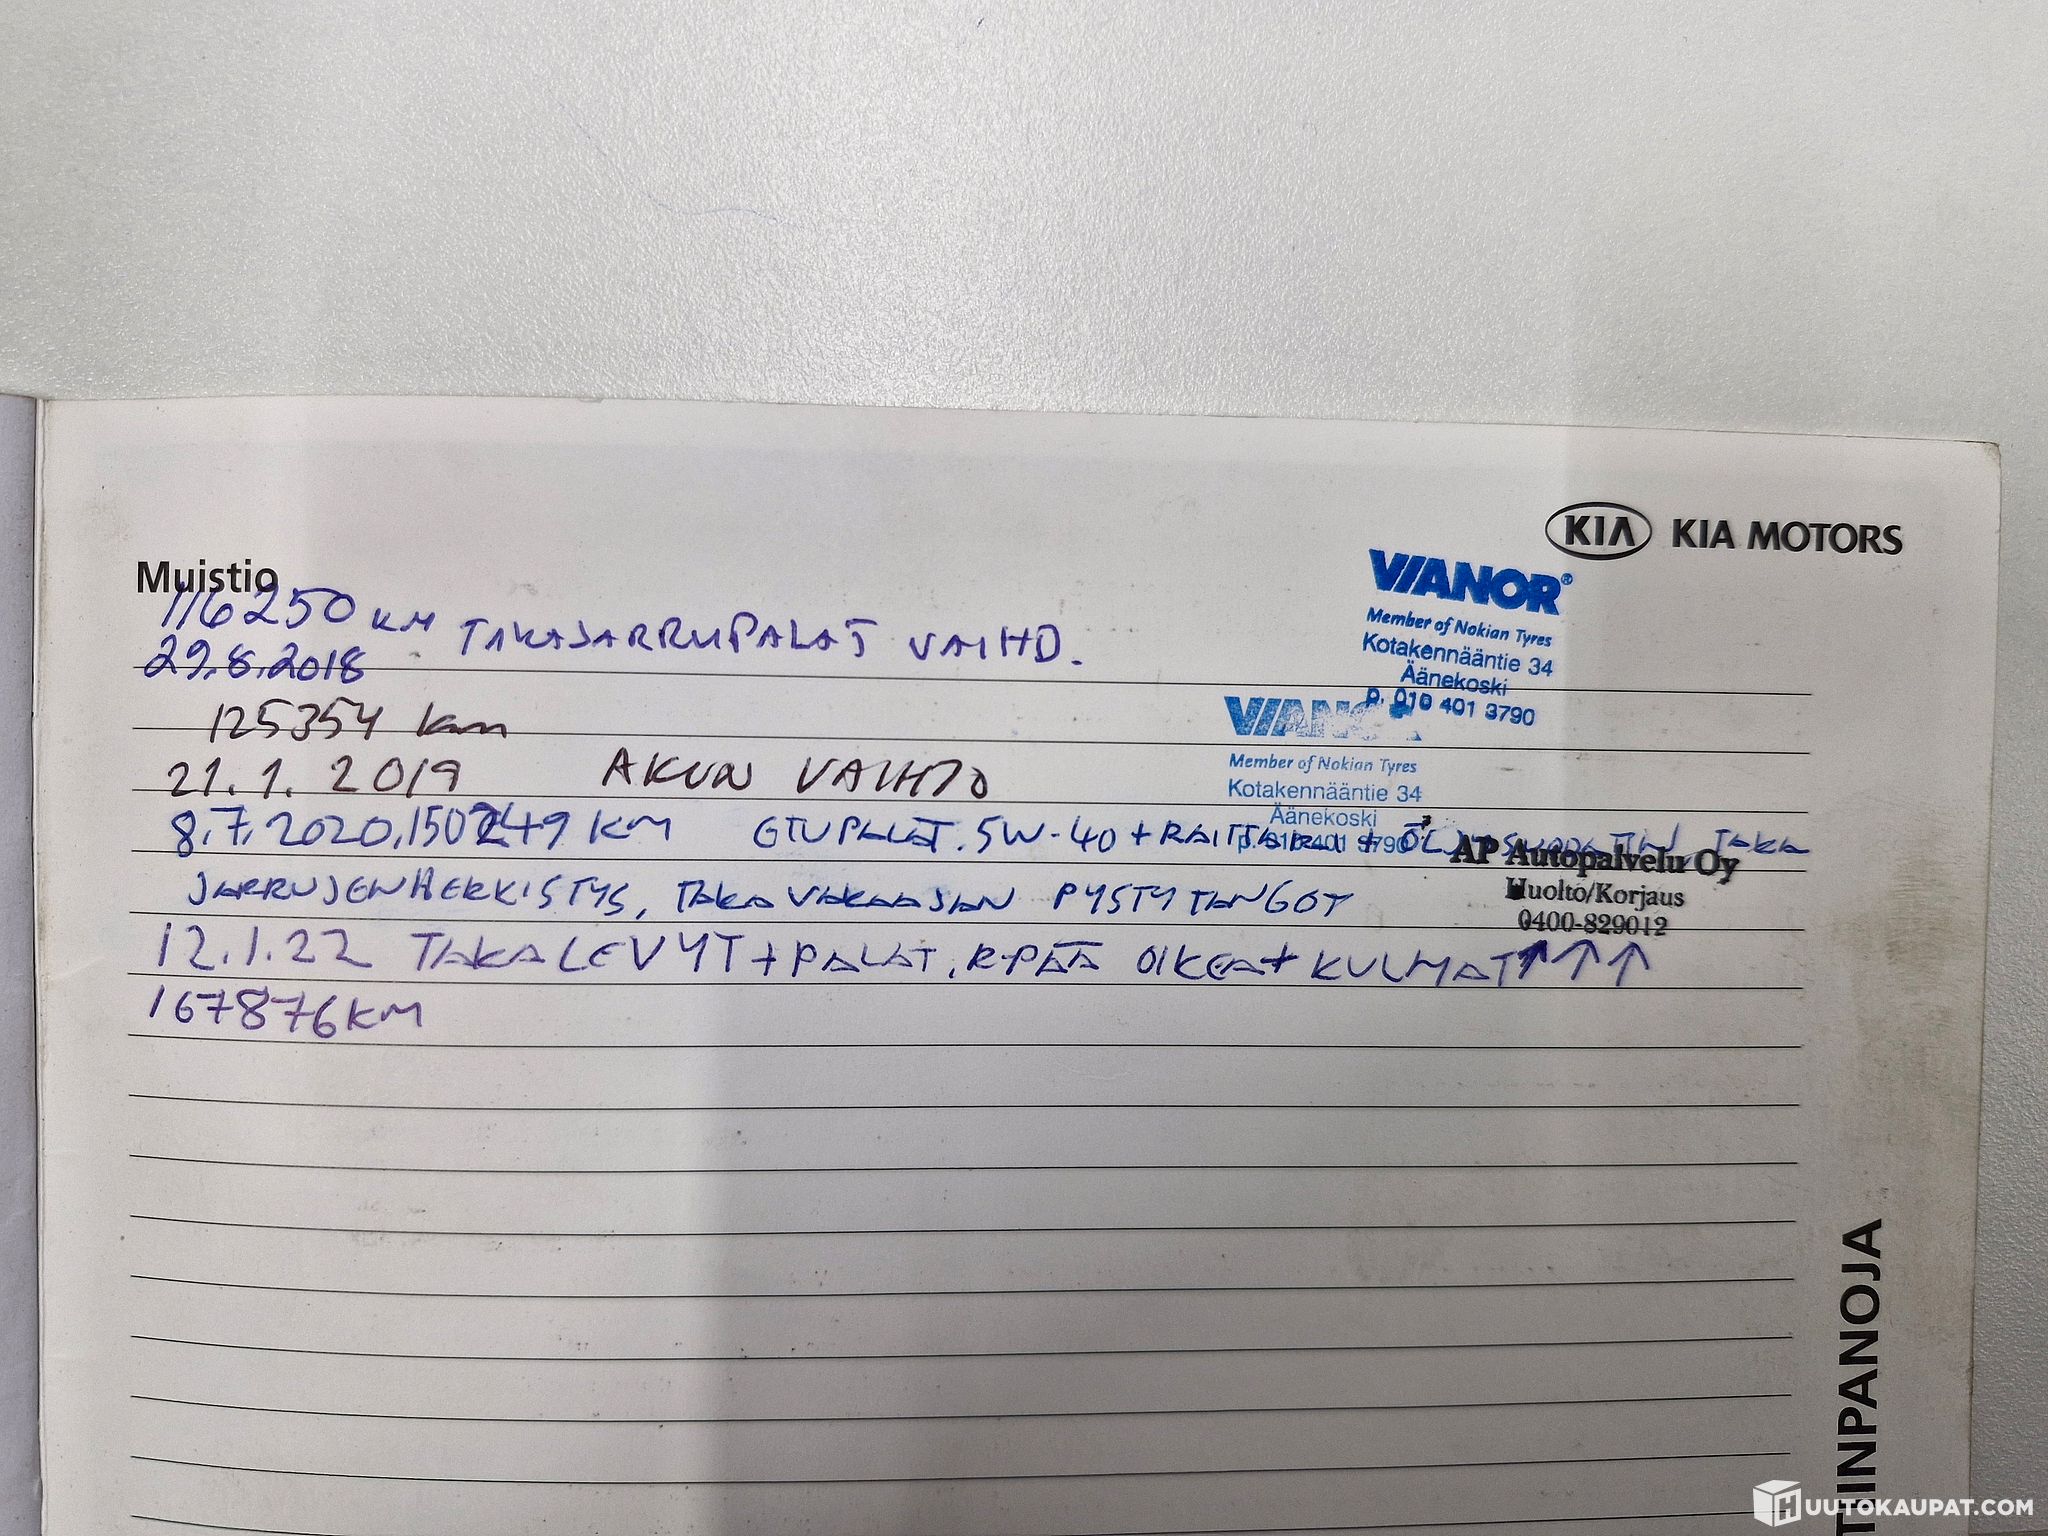 KIA KIA MOTORS
Muistio
116250 KM TAKAJARRUPALAT VAIHD.
29.8.2018
VIANOR®
Member of Nokian Tyres
Kotakennääntie 34
Äänekoski
p. 010 401 3790
125354 km
21.1.2019 AKUN VAIHTO
VIANOR
Member of Nokian Tyres
Kotakennääntie 34
Äänekoski
8.7.2020, KM ETUPALAT. 5W-40 + + TAKA
JARRUJEN HERKISTYS, TAKAVAKAAJAN PYSTYTANGOT
AP Autopalvelu Oy
Huolto/Korjaus
0400-829012
12.1.22 TAKALEVYT + PALAT, R-PÄÄ OIKEA + KULMAT ↑ ↑ ↑
167876 KM
TIINPANOJA
HUUTOKAUPAT.COM